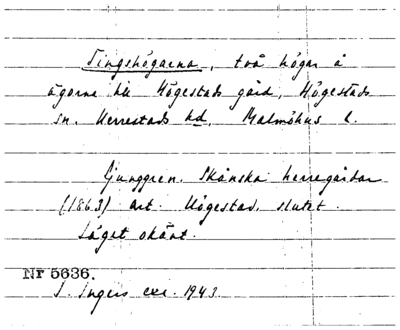 Tingshögarna, två högar å
ägorna till Högestads gård, Högestads
sn. Herrestads hd, Malmöhus l.
Ljunggren. Skånska herregårdar
(1863) art. Högestad, slutet.
Läget okänt.
Nr 5636.
I. Ingers exc. 1943.